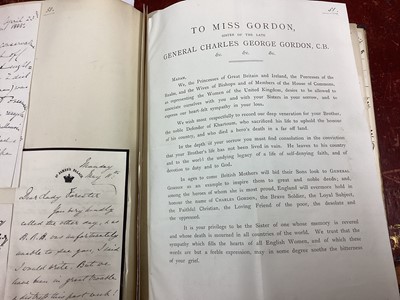 April 23rd
51.
St James's Palace
Monday
May 11th
Dear Lady Forester
You very kindly
called the other day, & as
H.R.H. was unfortunately
unable to see you I said
I would write. But we
have been in great trouble
TO MISS GORDON,
SISTER OF THE LATE
GENERAL CHARLES GEORGE GORDON, C.B.
&c. &c. &c.
Madam,
We, the Princesses of Great Britain and Ireland, the Peeresses of the
Realm, and the Wives of Bishops and of Members of the House of Commons,
as representing the Women of the United Kingdom, desire to be allowed to
associate ourselves with you and with your Sisters in your sorrow, and to
express our heart-felt sympathy in your loss.
We wish most respectfully to record our deep veneration for your Brother,
the noble Defender of Khartoum, who sacrificed his life to uphold the honour
of his country, and who died a hero's death in a far off land.
In the depth of your sorrow you must find consolation in the conviction
that your Brother's life has not been lived in vain. He leaves to his country
and to the world the undying legacy of a life of self-denying faith, and of
devotion to duty and to God.
In ages to come British Mothers will bid their Sons look to General
Gordon as an example to inspire them to great and noble deeds; and
among the heroes of whom she is most proud, England will evermore hold in
honour the name of Charles Gordon, the Brave Soldier, the Loyal Subject,
the Faithful Christian, the Loving Friend of the poor, the desolate and
the oppressed.
It is your privilege to be the Sister of one whose memory is revered
and whose death is mourned in all countries of the world. We trust that the
sympathy which fills the hearts of all English Women, and of which these
words are but a feeble expression, may in some degree soothe the bitterness
of your grief.